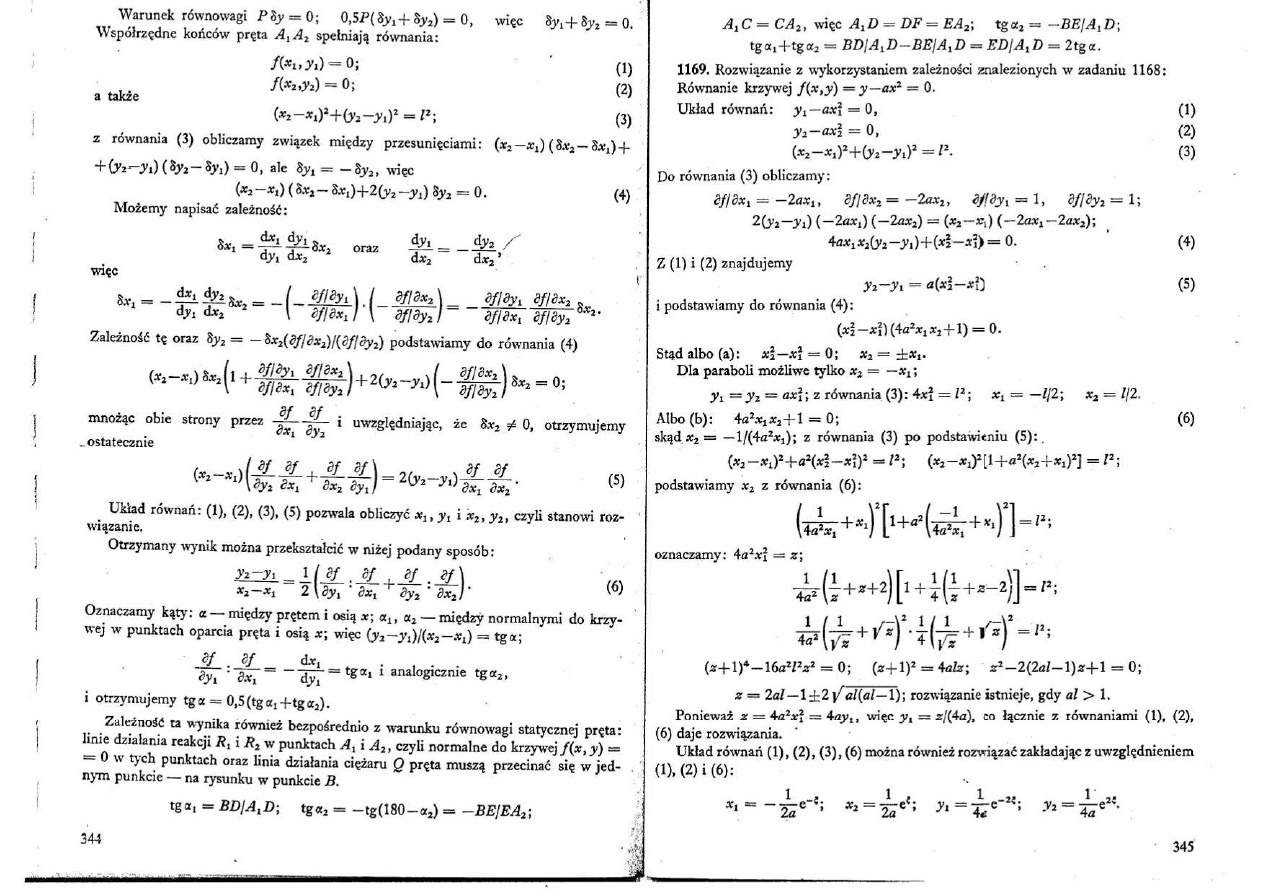 Warunek równowagi P δy = 0; 0,5P(δy₁+ δy₂) = 0, więc δy₁+ δy₂ = 0.
Współrzędne końców pręta A₁ A₂ spełniają równania:
f(x₁, y₁) = 0; (1)
f(x₂,y₂) = 0; (2)
a także
(x₂−x₁)²+(y₂−y₁)² = l²; (3)
z równania (3) obliczamy związek między przesunięciami: (x₂−x₁) ( δx₂− δx₁)+
+(y₂−y₁) ( δy₂− δy₁) = 0, ale δy₁ = − δy₂, więc
(x₂−x₁) ( δx₂− δx₁)+2(y₂−y₁) δy₂ = 0. (4)
Możemy napisać zależność:
δx₁ = dx₁/dy₁ dy₁/dx₂ δx₂ oraz dy₁/dx₂ = − dy₂/dx₂,
więc
δx₁ = − dx₁/dy₁ dy₂/dx₂ δx₂ = −(− ∂f/∂y₁ / ∂f/∂x₁)·(− ∂f/∂x₂ / ∂f/∂y₂) = − ∂f/∂y₁ / ∂f/∂x₁ ∂f/∂x₂ / ∂f/∂y₂ δx₂.
Zależność tę oraz δy₂ = − δx₂(∂f/∂x₂)/(∂f/∂y₂) podstawiamy do równania (4)
(x₂−x₁) δx₂(1 + ∂f/∂y₁ / ∂f/∂x₁ ∂f/∂x₂ / ∂f/∂y₂)+2(y₂−y₁)(− ∂f/∂x₂ / ∂f/∂y₂) δx₂ = 0;
mnożąc obie strony przez ∂f/∂x₁ ∂f/∂y₂ i uwzględniając, że δx₂ ≠ 0, otrzymujemy
ostatecznie
(x₂−x₁)(∂f/∂y₂ ∂f/∂x₁ + ∂f/∂x₂ ∂f/∂y₁) = 2(y₂−y₁) ∂f/∂x₁ ∂f/∂x₂. (5)
Układ równań: (1), (2), (3), (5) pozwala obliczyć x₁, y₁ i x₂, y₂, czyli stanowi roz-
wiązanie.
Otrzymany wynik można przekształcić w niżej podany sposób:
y₂−y₁/x₂−x₁ = 1/2 (∂f/∂y₁ : ∂f/∂x₁ + ∂f/∂y₂ : ∂f/∂x₂). (6)
Oznaczamy kąty: α — między prętem i osią x; α₁, α₂ — między normalnymi do krzy-
wej w punktach oparcia pręta i osią x; więc (y₂−y₁)/(x₂−x₁) = tg α;
∂f/∂y₁ : ∂f/∂x₁ = − dx₁/dy₁ = tg α₁ i analogicznie tg α₂,
i otrzymujemy tg α = 0,5(tg α₁+tg α₂).
Zależność ta wynika również bezpośrednio z warunku równowagi statycznej pręta:
linie działania reakcji R₁ i R₂ w punktach A₁ i A₂, czyli normalne do krzywej f(x, y) =
= 0 w tych punktach oraz linia działania ciężaru Q pręta muszą przecinać się w jed-
nym punkcie — na rysunku w punkcie B.
tg α₁ = BD/A₁D; tg α₂ = −tg(180−α₂) = −BE/EA₂;
344
A₁C = CA₂, więc A₁D = DF = EA₂; tg α₂ = −BE/A₁D;
tg α₁+tg α₂ = BD/A₁D−BE/A₁D = ED/A₁D = 2tg α.
1169. Rozwiązanie z wykorzystaniem zależności znalezionych w zadaniu 1168:
Równanie krzywej f(x,y) = y−ax² = 0.
Układ równań: y₁−ax₁² = 0, (1)
y₂−ax₂² = 0, (2)
(x₂−x₁)²+(y₂−y₁)² = l². (3)
Do równania (3) obliczamy:
∂f/∂x₁ = −2ax₁, ∂f/∂x₂ = −2ax₂, ∂f/∂y₁ = 1, ∂f/∂y₂ = 1;
2(y₂−y₁) (−2ax₁) (−2ax₂) = (x₂−x₁) (−2ax₁−2ax₂);
4ax₁x₂(y₂−y₁)+(x₂²−x₁²) = 0. (4)
Z (1) i (2) znajdujemy
y₂−y₁ = a(x₂²−x₁²) (5)
i podstawiamy do równania (4):
(x₂²−x₁²) (4a²x₁x₂+1) = 0.
Stąd albo (a): x₂²−x₁² = 0; x₂ = ±x₁.
Dla paraboli możliwe tylko x₂ = −x₁;
y₁ = y₂ = ax₁²; z równania (3): 4x₁² = l²; x₁ = −l/2; x₂ = l/2.
Albo (b): 4a²x₁x₂+1 = 0; (6)
skąd x₂ = −1/(4a²x₁); z równania (3) po podstawieniu (5):
(x₂−x₁)²+a²(x₂²−x₁²)² = l²; (x₂−x₁)²[1+a²(x₂+x₁)²] = l²;
podstawiamy x₂ z równania (6):
(1/4a²x₁ +x₁)² [1+a²(−1/4a²x₁ +x₁)²] = l²;
oznaczamy: 4a²x₁² = z;
1/4a² (1/z +z+2)[1 + 1/4 (1/z +z−2)] = l²;
1/4a² (1/√z + √z)² · 1/4 (1/√z + √z)² = l²;
(z+1)⁴−16a²l²z² = 0; (z+1)² = 4alz; z²−2(2al−1)z+1 = 0;
z = 2al−1±2√al(al−1); rozwiązanie istnieje, gdy al > 1.
Ponieważ z = 4a²x₁² = 4ay₁, więc y₁ = z/(4a), co łącznie z równaniami (1), (2),
(6) daje rozwiązania.
Układ równań (1), (2), (3), (6) można również rozwiązać zakładając z uwzględnieniem
(1), (2) i (6):
x₁ = − 1/2a e^−ξ; x₂ = 1/2a e^ξ; y₁ = 1/4a e^−2ξ; y₂ = 1/4a e^2ξ.
345